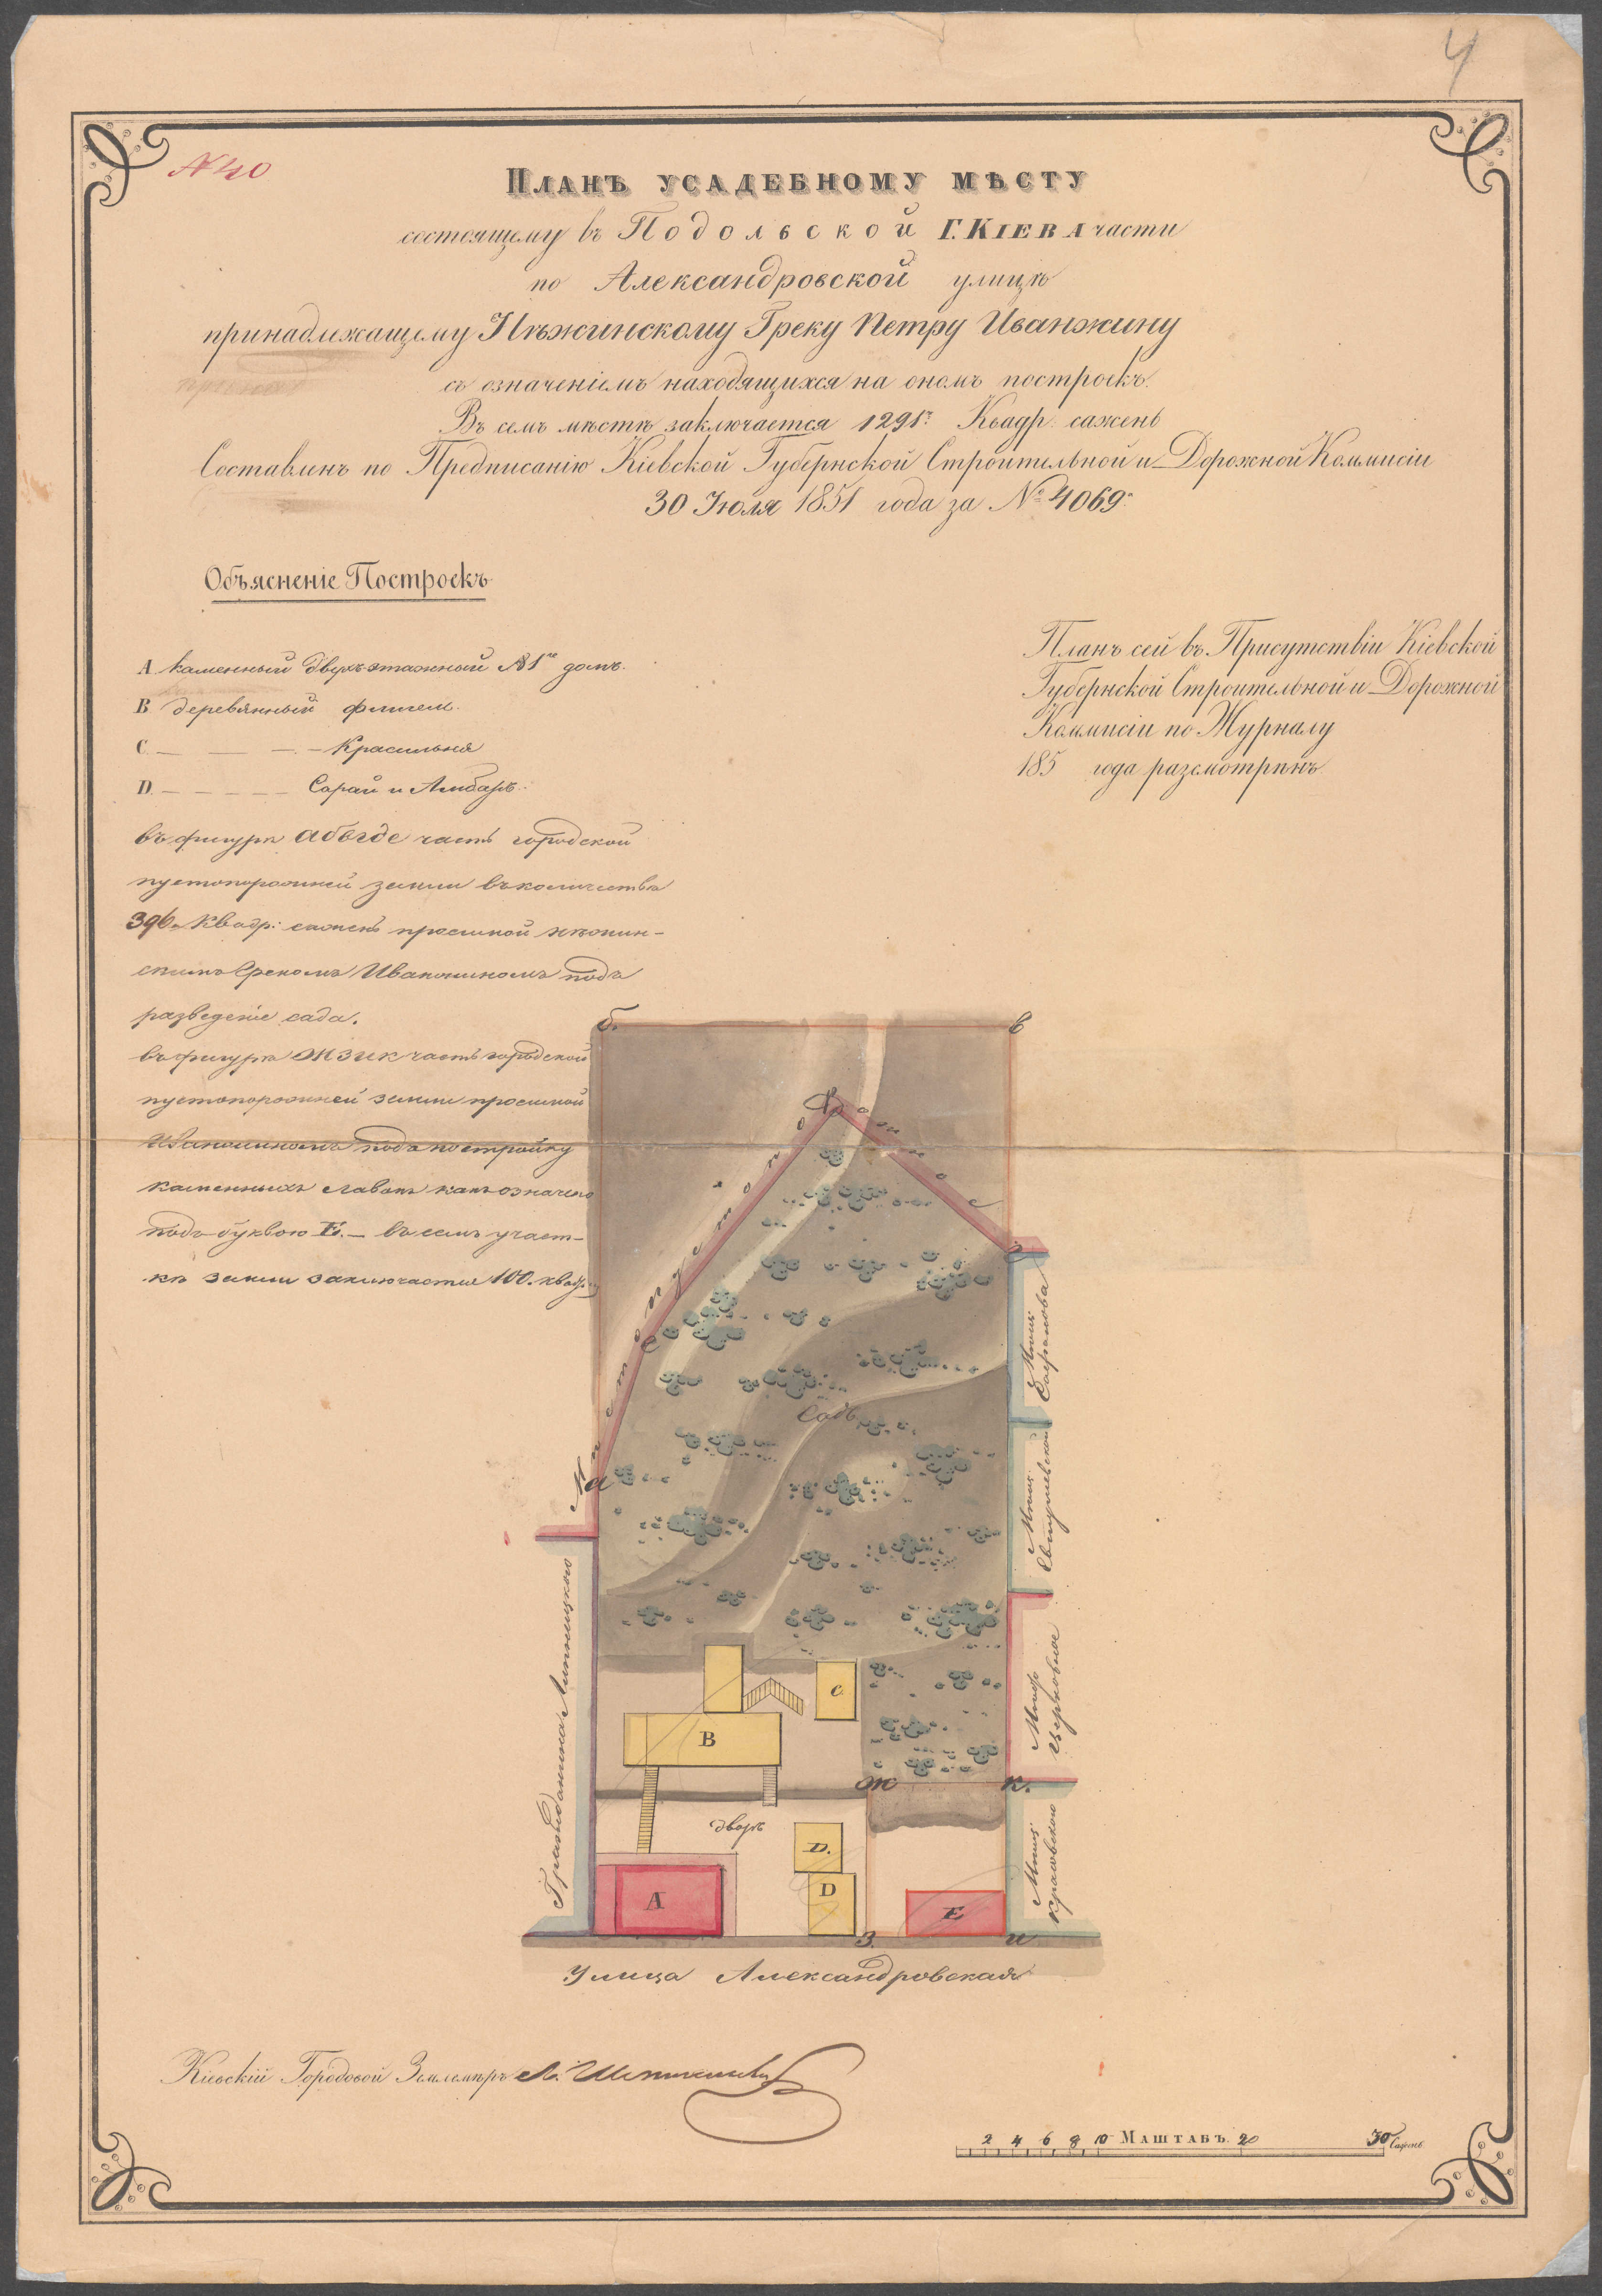 4
№ 40
Планъ усадебному мѣсту
состоящему въ Подольской Г. Кіева части
по Александровской улицѣ
принадлежащему Нѣжинскому Греку Петру Иванжину
съ означеніемъ находящихся на ономъ построекъ.
Въ семъ мѣстѣ заключается 1291 Квадр. сажень
Составленъ по Предписанію Кіевской Губернской Строительной и Дорожной Коммисіи
30 Іюля 1851 года за № 4069.
Объясненіе Построекъ
А каменный двухъэтажный № 1го домъ.
В деревянный флигель.
С — — — Красильня
D — — — — — Сарай и Амбаръ.
въ фигурѣ абвгде часть городской
пустопорожней земли въ количествѣ
396. Квадр: сажень просимой нѣжин-
скимъ Грекомъ Иванжиномъ подъ
разведеніе сада.
въ фигурѣ жзик часть городской
пустопорожней земли просимой
Иванжиномъ подъ постройку
каменныхъ лавокъ какъ означено
подъ буквою Е. — въ семъ участ-
кѣ земли заключается 100. квадр.
Планъ сей въ Присутствіи Кіевской
Губернской Строительной и Дорожной
Коммисіи по Журналу
185 года разсмотрѣнъ
б. в
д
г
е
а
Садъ
С
В
ж к.
дворъ
D.
D
А
Е
з. и
Гражданина Липницкаго
Мѣщ:
Мѣщ:
Мѣсто
церковное
Мѣщ:
Красовскаго
Улица Александровская
Кіевскій Городовой Землемѣръ
2 4 6 8 10 Маштабъ. 20 30 Сажень